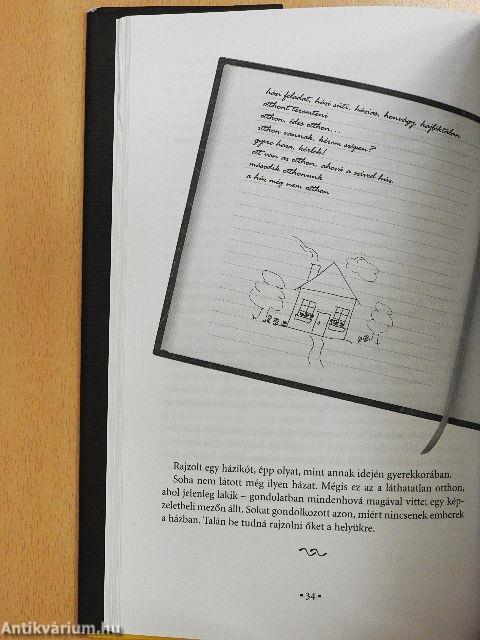 házi feladat, házi sütő, háziúr, honvágy, hajléktalan
otthont teremteni
otthon, édes otthon...
itthon vannak, kérem szépen?
gyere haza, kérlek!
ott van az otthon, ahová a szíved húz.
második otthonunk
a ház még nem otthon
Rajzolt egy házikót, épp olyat, mint annak idején gyerekkorában.
Soha nem látott még ilyen házat. Mégis ez az a láthatatlan otthon,
ahol jelenleg lakik – gondolatban mindenhová magával vitte; egy kép-
zeletbeli mezőn állt. Sokat gondolkozott azon, miért nincsenek emberek
a házban. Talán be tudná rajzolni őket a helyükre.
• 34 •
Antikvárium.hu